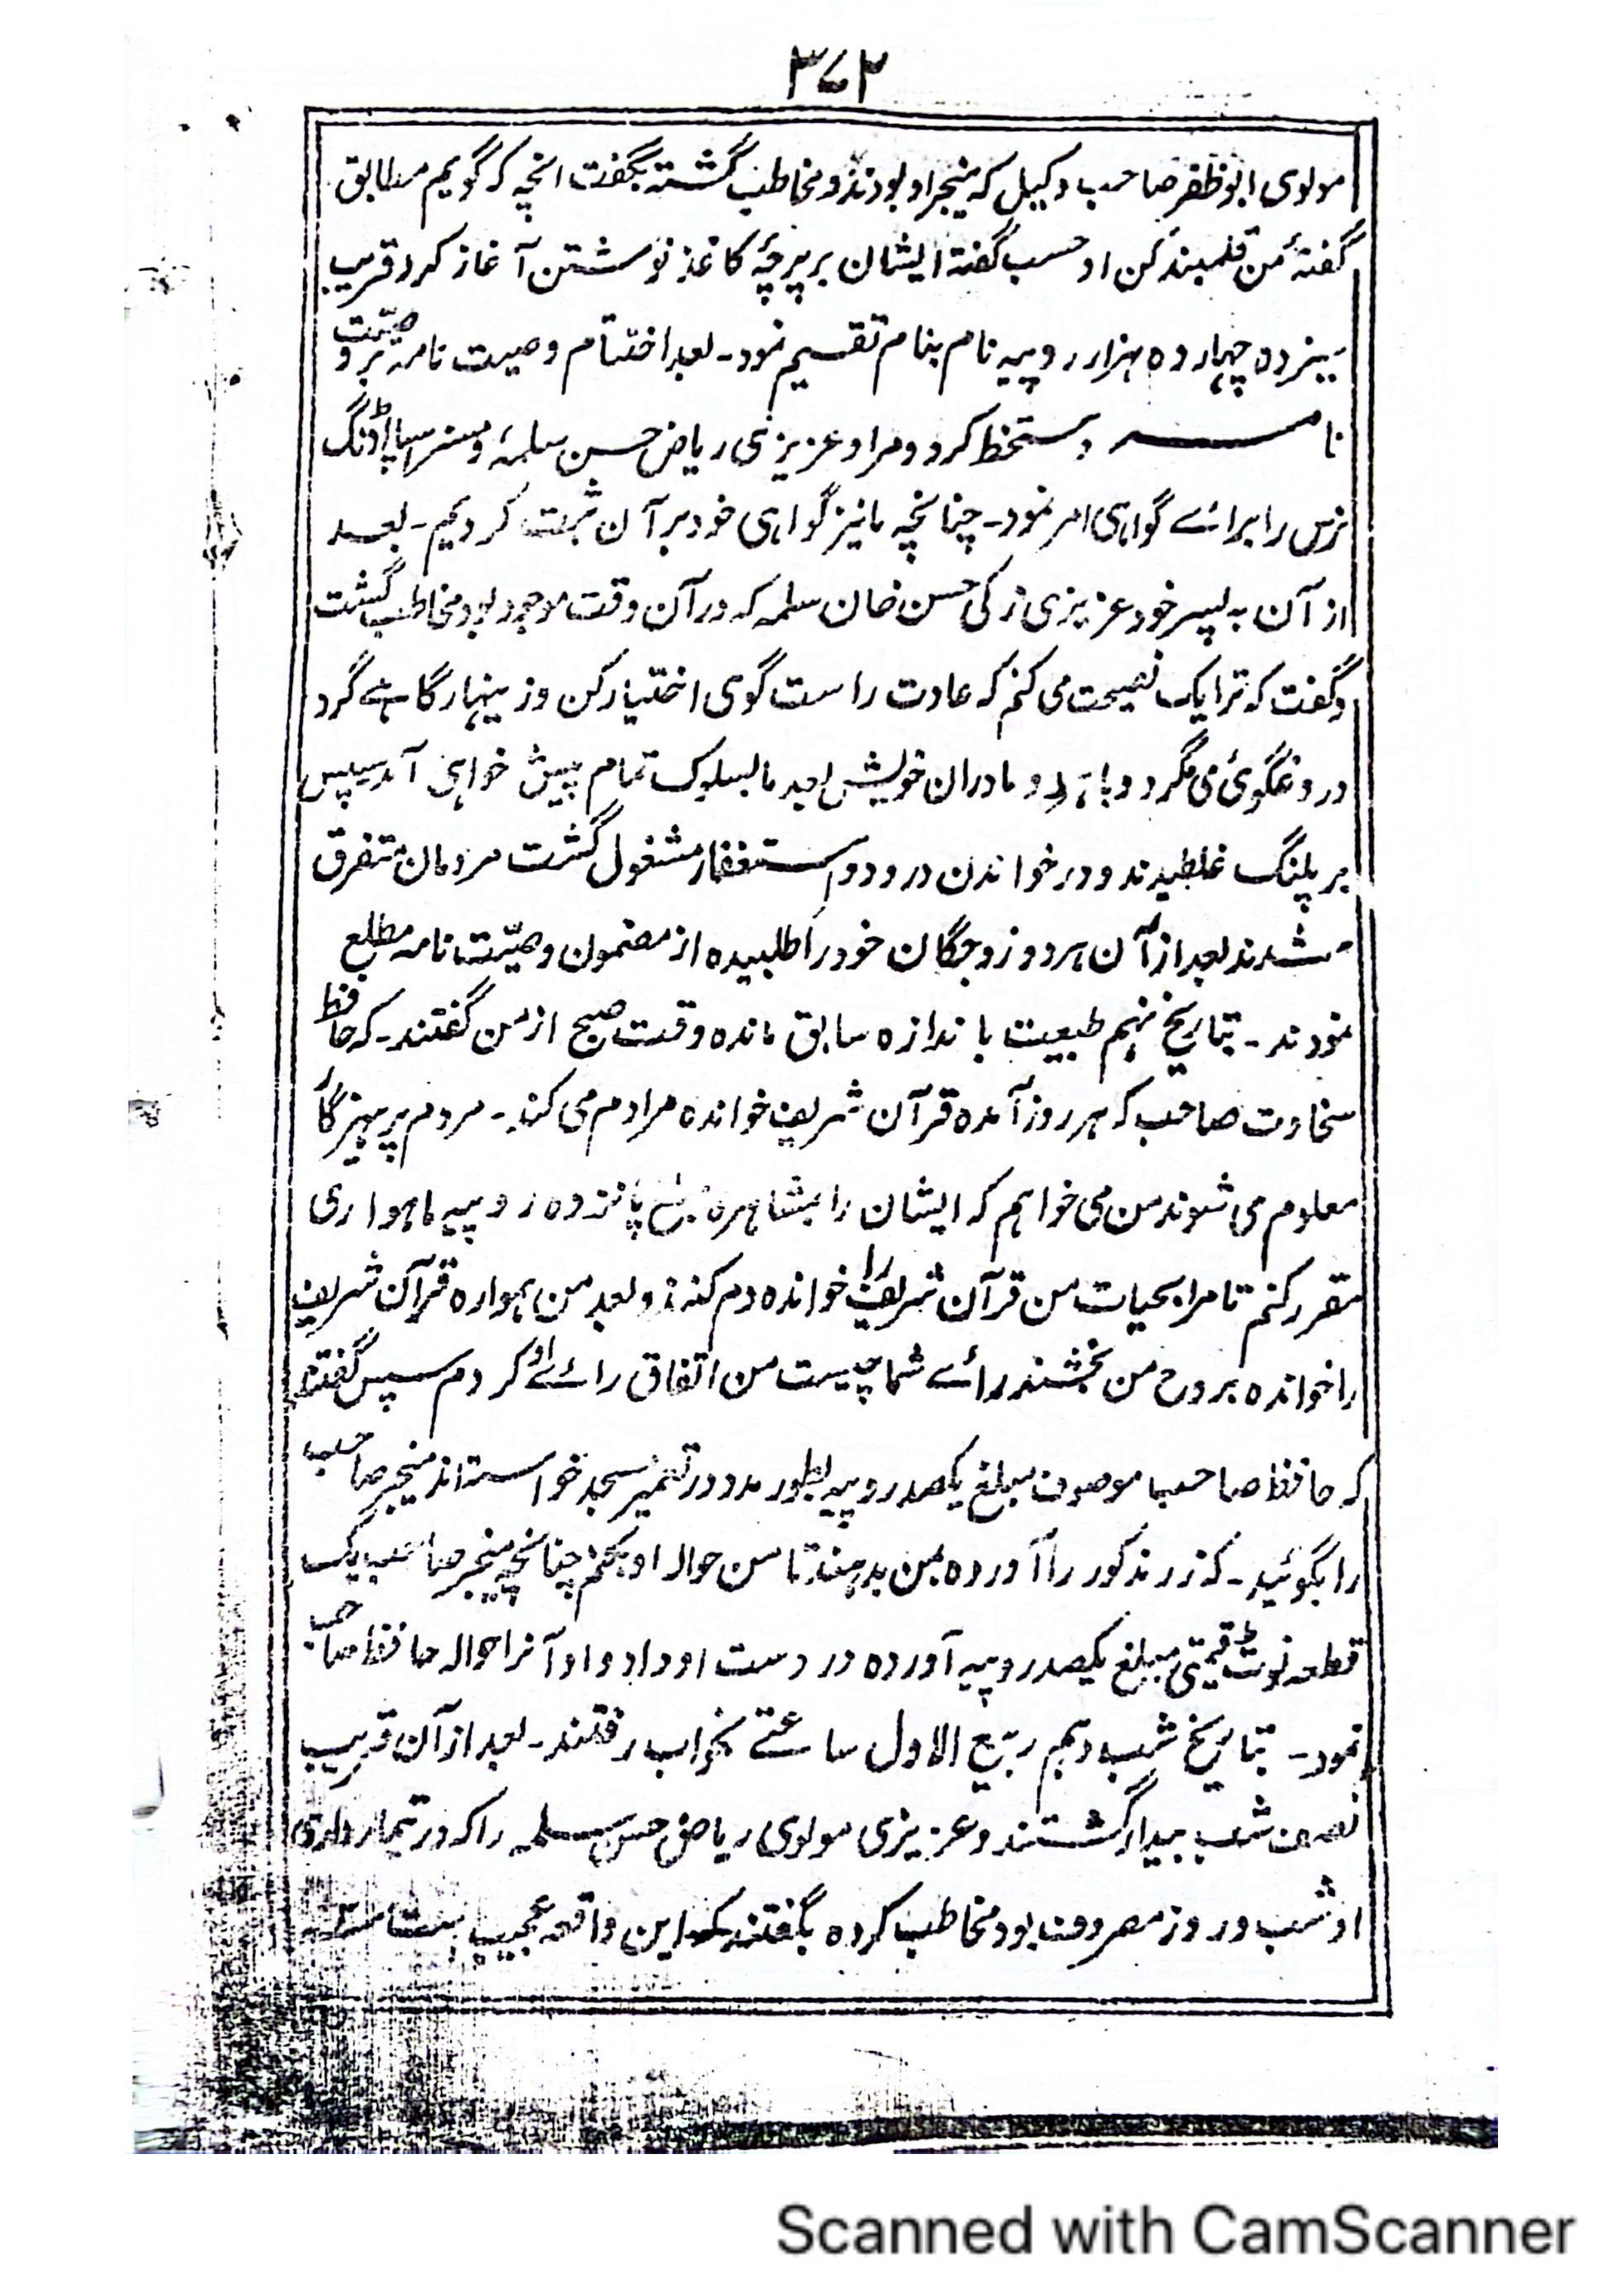 ۳۷۲
مولوی ابوظفر صاحب وکیل که منیجر او بودند و مخاطب گشته بگفت انچه که گویم مطابق
گفتهٔ من قلمبند کن او حسب گفتهٔ ایشان بر پرچهٔ کاغذ نوشتن آغاز کرد قریب
سیزده چهارده هزار روپیه نام بنام تقسیم نمود۔ بعد اختتام وصیت نامه بر وصیّت
نامه دستخط کرد و مرا و عزیزی ریاض حسن سلمهٗ و مسز
نرس را برائے گواهی امر نمود۔ چنانچه ما نیز گواهی خود بر آن ثبت کردیم۔ بعد
از آن به پسر خود عزیزی زکی حسن خان سلمه که در آن وقت موجود بود مخاطب گشت
و گفت که ترا یک نصیحت می کنم که عادت راست گوی اختیار کن و زینهار گاهے گرد
دروغگوئی می مگرد و با هر دو مادران خویش بعد ما بسلوک تمام پیش خواهی آمد سپس
بر پلنگ غلطیدند و در خواندن درود و استغفار مشغول گشت مردمان متفرق
شدند بعد از آن هر دو زوجگان خود را طلبیده از مضمون وصیّت نامه مطلع
نمودند۔ بتاریخ نهم طبیعت باندازه سابق مانده وقت صبح از من گفتند۔ که حافظ
سخاوت صاحب که هر روز آمده قرآن شریف خوانده مرا دم می کند۔ مردم پرهیزگار
معلوم می شوند من می خواهم که ایشان را بمشاهره مبلغ پانزده روپیه ماهواری
مقرر کنم تا مرا بحیات من قرآن شریف را خوانده دم کنند و بعد من همواره قرآن شریف
را خوانده بر روح من بخشند رائے شما چیست من اتفاق رائے او کردم سپس گفتند
که حافظ صاحب موصوف مبلغ یکصد روپیه بطور مدد در تعمیر مسجد خواسته اند منیجر صاحب
را بگوئید۔ که زر مذکور را آورده بمن بدهند تا من حواله او بکنم چنانچه منیجر صاحب یک
قطعه نوٹ قیمتی مبلغ یکصد روپیه آورده در دست او داد و او آنرا حواله حافظ صاحب
نمود۔ بتاریخ شب دهم ربیع الاول ساعتے بخواب رفتند۔ بعد از آن قریب
نصف شب بیدار گشتند و عزیزی مولوی ریاض حسن سلمه را که در تیمارداری
او شب و روز مصروف بود مخاطب کرده بگفتند که این واقعه عجیب است
Scanned with CamScanner